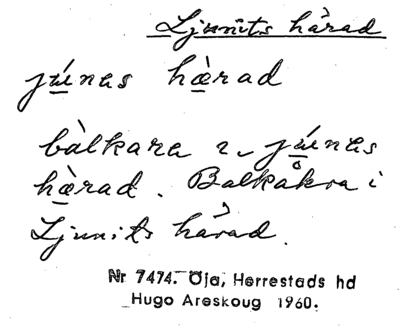 Ljunits härad
júnas hæ̀rad
bàlkara i júnas
hæ̀rad. Balkåkra i
Ljunits härad.
Nr 7474. Öja, Herrestads hd
Hugo Areskoug 1960.